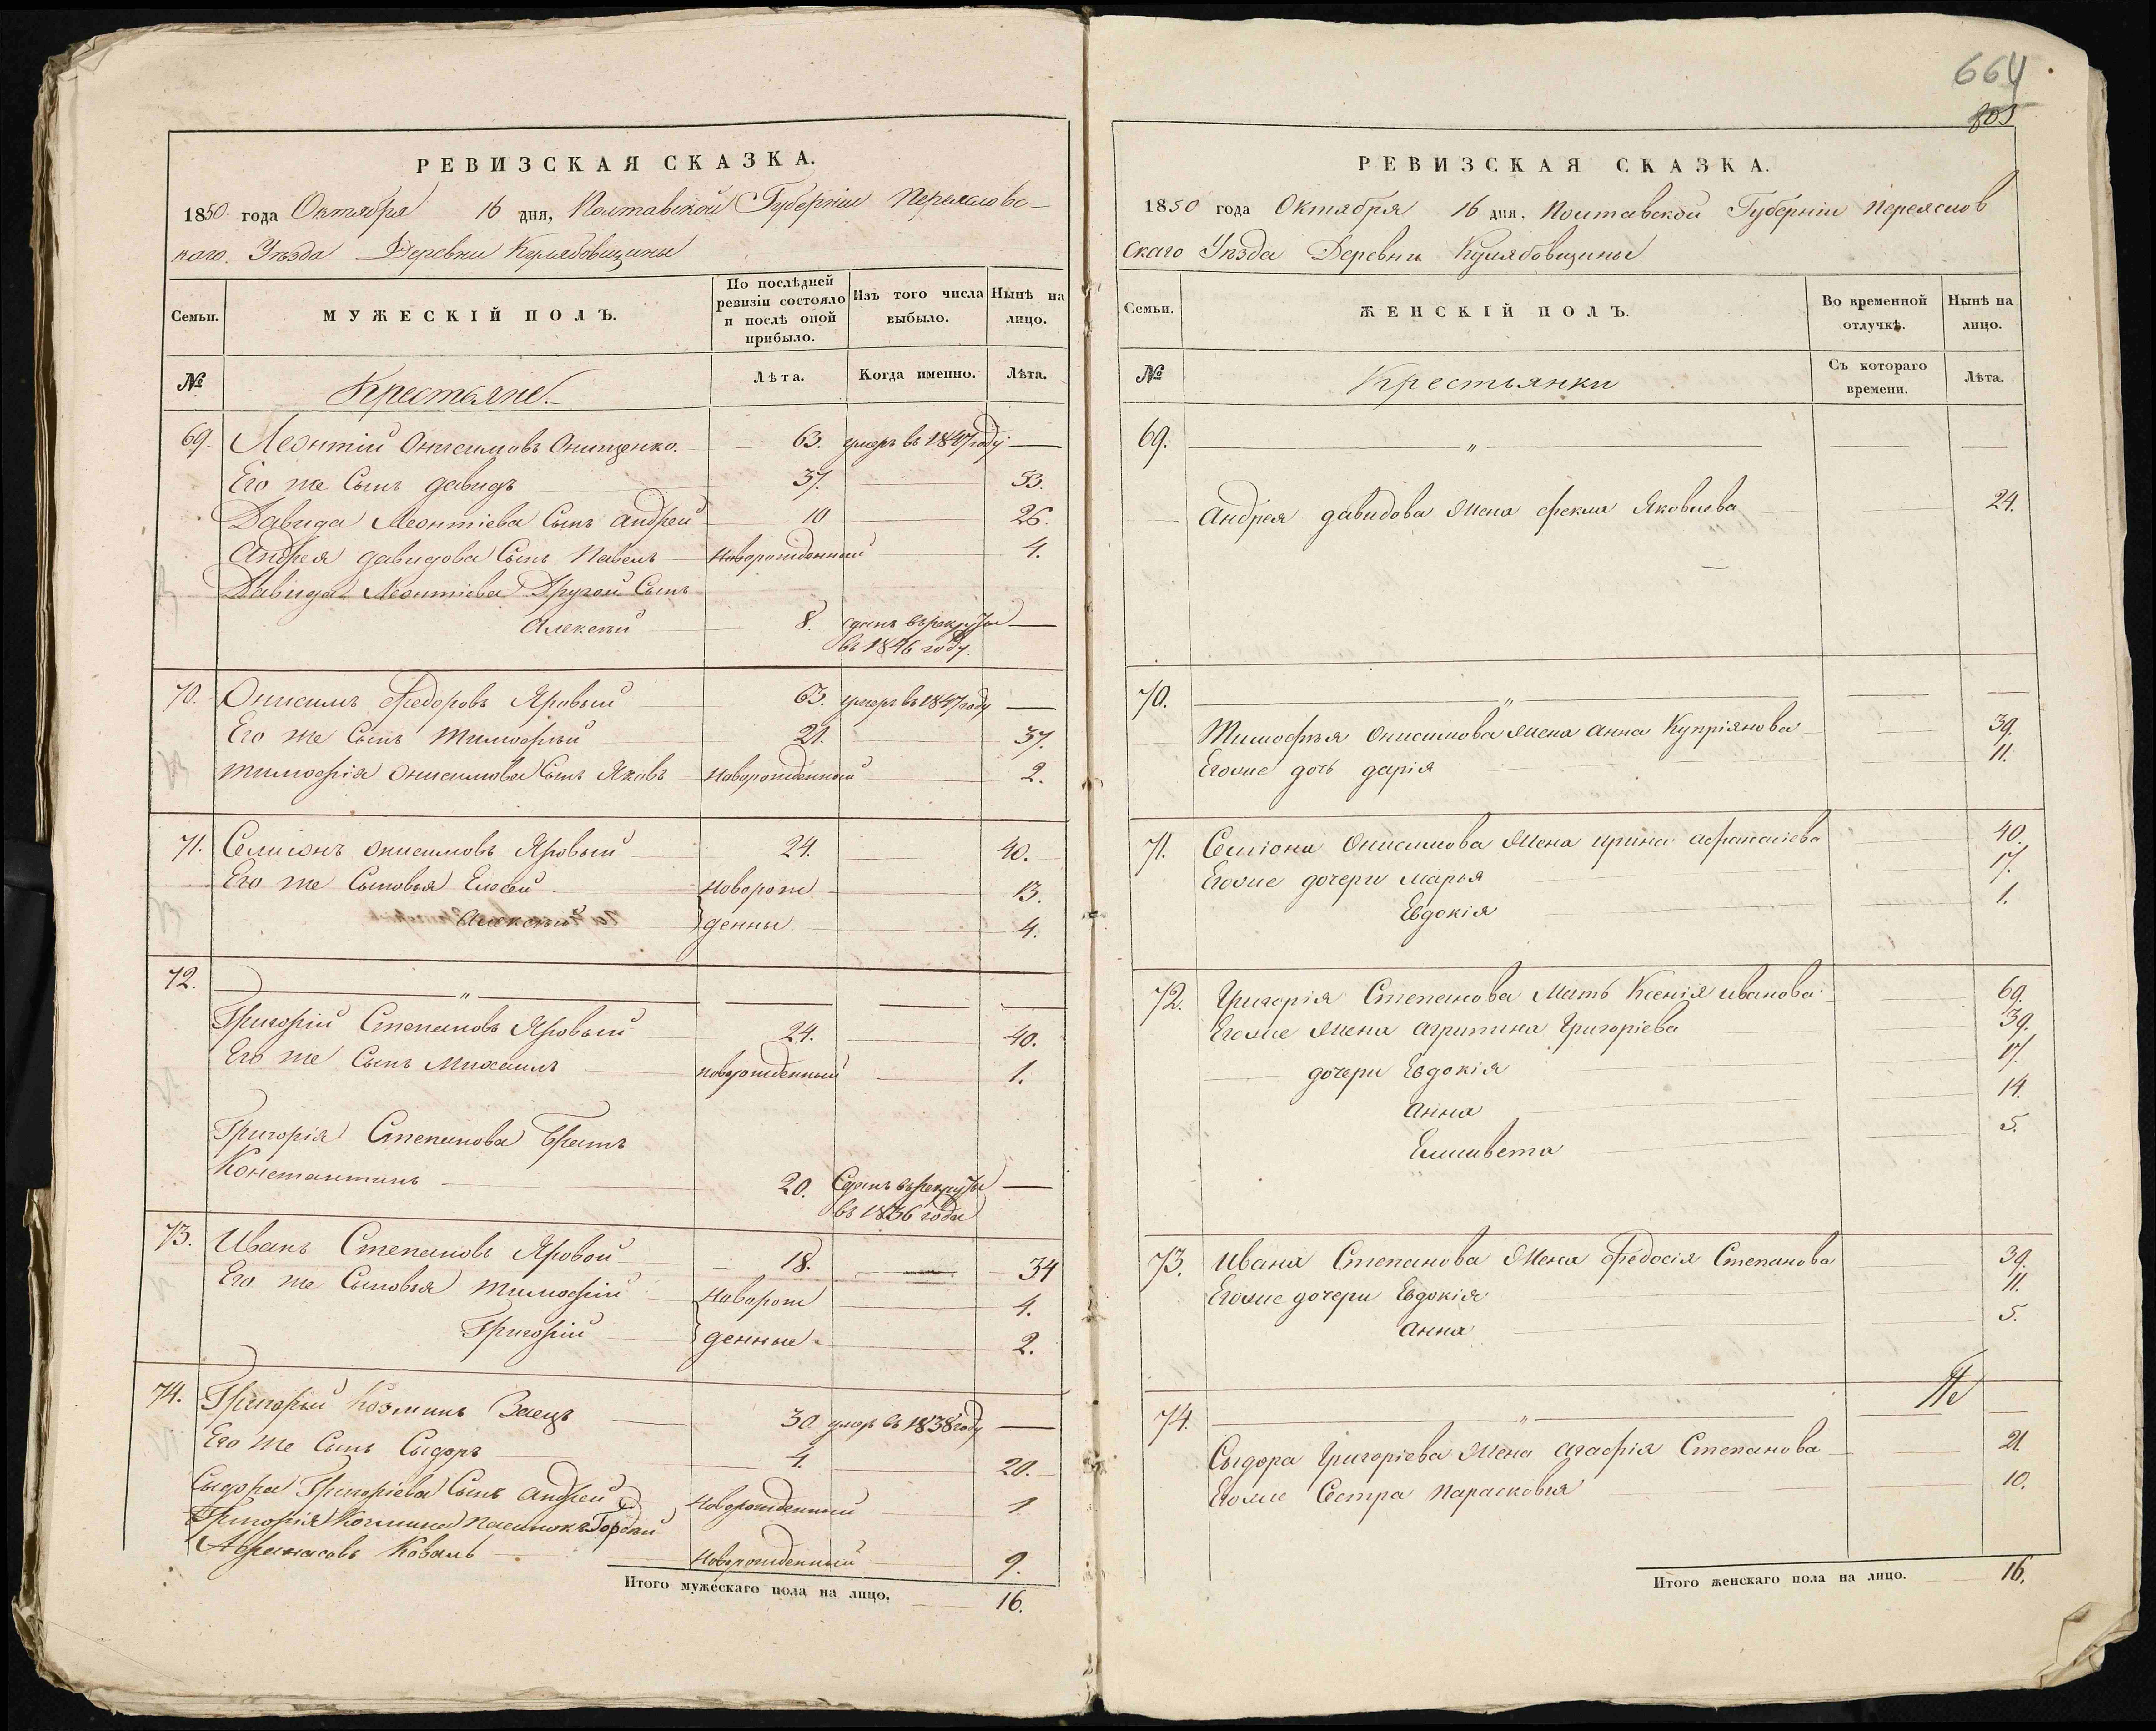 РЕВИЗСКАЯ СКАЗКА.
1850 года Октября 16 дня, Полтавской Губерніи Переяславс-
каго Уѣзда Деревни Кулябовщины
Семьи. МУЖЕСКІЙ ПОЛЪ. По послѣдней ревизіи состояло и послѣ оной прибыло. Изъ того числа выбыло. Нынѣ на лицо.
№ Крестьяне. Лѣта. Когда именно. Лѣта.
69. Леонтій Онисимовъ Онищенко. 63. умеръ въ 1847 году —
Его же Сынъ давидъ 37. 53.
Давида Леонтіева Сынъ андрей 10 26.
Андрея давидова Сынъ Павелъ Новорожденный 4.
Давида Леонтіева Другой Сынъ
Алексѣй 8. сданъ въ рекруты —
въ 1846 году.
70. Онисимъ Федоровъ Яровый 63. умеръ въ 1847 году —
Его же Сынъ Тимофѣй 21. 37.
Тимофія Онисимова Сынъ Яковъ Новорожденный 2.
71. Семіонъ Онисимовъ Яровый 24. 40.
Его же Сыновья Елесей Новорож 13.
Алексѣй денны 4.
72. — " —
Григорій Степановъ Яровый 24. 40.
Его же Сынъ Михаилъ новорожденный 1.
Григорія Степанова Братъ
Константинъ 20. Сданъ въ рекруты —
въ 1836 годе
73. Иванъ Степановъ Яровой 18. 34
Его же Сыновья Тимофій Новорож 4.
Григорій денные 2.
74. Григорій Козминъ Заецъ 30. умеръ въ 1838 году —
Его же Сынъ Сыдоръ 4. 20.
Сыдора Григоріева Сынъ андрей Новорожденный 1.
Григорія Козмина Пасинокъ Гордѣй
Афанасовъ Коваль Новорожденный 9.
Итого мужескаго пола на лицо. 16.
664
803
РЕВИЗСКАЯ СКАЗКА.
1850 года Октября 16 дня, Полтавской Губерніи Переяслов
скаго Уѣзда Деревни Кулябовщины
Семьи. ЖЕНСКІЙ ПОЛЪ. Во временной отлучкѣ. Нынѣ на лицо.
№ Крестьянки Съ котораго времени. Лѣта.
69. — " —
Андрея давидова Жена фекла Яковлева 24.
70. — " —
Тимофѣя Онисимова Жена Анна Купріянова 39.
Егоже дочь дарія 11.
71. Семіона Онисимова Жена ирина афанасіева 40.
Егоже дочери Марья 17.
Евдокія 1.
72. Григорія Степанова Мать Ксенія иванова 69.
Егоже Жена агрипина Григоріева 39.
дочери Евдокія 17.
Анна 14.
Елисавета 5.
73. Ивана Степанова Жена Федосія Степанова 39.
Егоже дочери Евдокія 11.
Анна 5.
74. — " —
Сыдора Григоріева Жена агафія Степанова 21.
Егоже Сестра Парасковья 10.
Итого женскаго пола на лицо. 16.